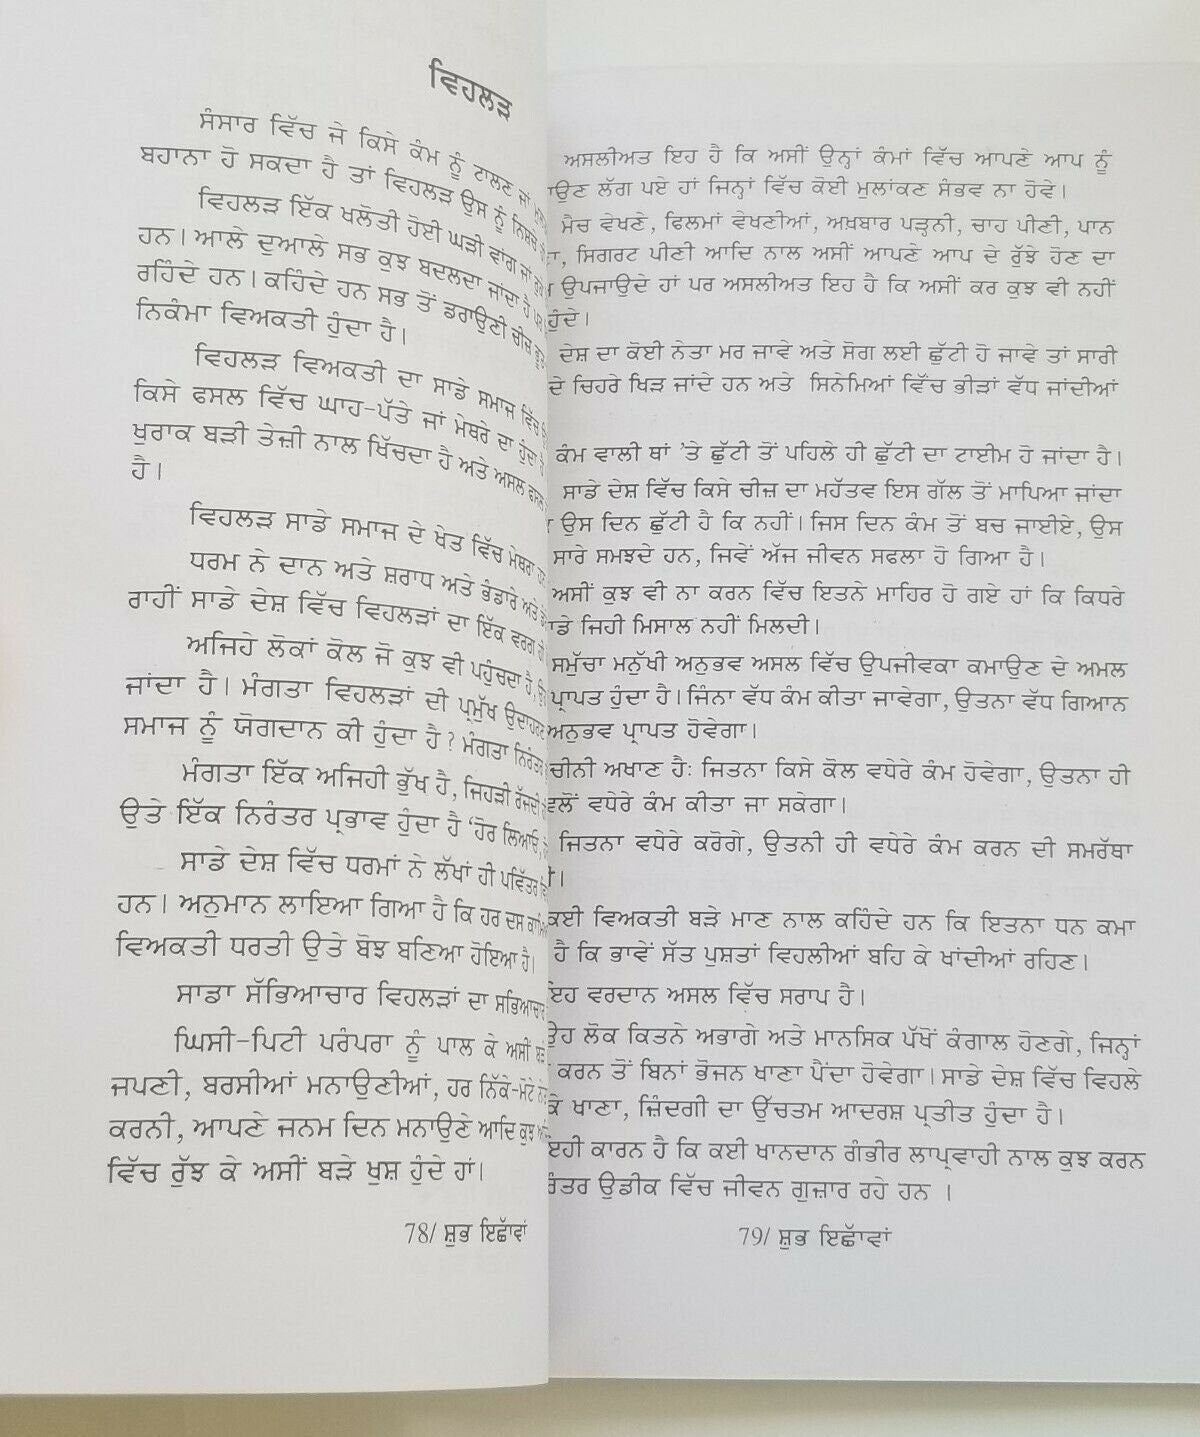 ਵਿਹਲੜ
ਸੰਸਾਰ ਵਿੱਚ ਜੇ ਕਿਸੇ ਕੰਮ ਨੂੰ ਟਾਲਣ ਜਾਂ
ਬਹਾਨਾ ਹੋ ਸਕਦਾ ਹੈ ਤਾਂ ਵਿਹਲੜ ਉਸ ਨੂੰ ਨਿਸਚੇ
ਵਿਹਲੜ ਇੱਕ ਖਲੋਤੀ ਹੋਈ ਘੜੀ ਵਾਂਗ ਜਾਂ
ਹਨ। ਆਲੇ ਦੁਆਲੇ ਸਭ ਕੁਝ ਬਦਲਦਾ ਜਾਂਦਾ ਹੈ ਪਰ
ਰਹਿੰਦੇ ਹਨ। ਕਹਿੰਦੇ ਹਨ ਸਭ ਤੋਂ ਡਰਾਉਣੀ ਚੀਜ਼
ਨਿਕੰਮਾ ਵਿਅਕਤੀ ਹੁੰਦਾ ਹੈ।
ਵਿਹਲੜ ਵਿਅਕਤੀ ਦਾ ਸਾਡੇ ਸਮਾਜ ਵਿੱਚ
ਕਿਸੇ ਫਸਲ ਵਿੱਚ ਘਾਹ-ਪੱਤੇ ਜਾਂ ਮੇਥਰੇ ਦਾ ਹੁੰਦਾ ਹੈ
ਖੁਰਾਕ ਬੜੀ ਤੇਜ਼ੀ ਨਾਲ ਖਿੱਚਦਾ ਹੈ ਅਤੇ ਅਸਲ ਫਸਲ
ਹੈ।
ਵਿਹਲੜ ਸਾਡੇ ਸਮਾਜ ਦੇ ਖੇਤ ਵਿੱਚ ਮੇਥਰਾ
ਧਰਮ ਨੇ ਦਾਨ ਅਤੇ ਸ਼ਰਾਧ ਅਤੇ ਭੰਡਾਰੇ ਅਤੇ
ਰਾਹੀਂ ਸਾਡੇ ਦੇਸ਼ ਵਿੱਚ ਵਿਹਲੜਾਂ ਦਾ ਇੱਕ ਵਰਗ ਹੀ
ਅਜਿਹੇ ਲੋਕਾਂ ਕੋਲ ਜੋ ਕੁਝ ਵੀ ਪਹੁੰਚਦਾ ਹੈ,
ਜਾਂਦਾ ਹੈ। ਮੰਗਤਾ ਵਿਹਲੜਾਂ ਦੀ ਪ੍ਰਮੁੱਖ ਉਦਾਹਰਣ
ਸਮਾਜ ਨੂੰ ਯੋਗਦਾਨ ਕੀ ਹੁੰਦਾ ਹੈ? ਮੰਗਤਾ ਨਿਰੰਤਰ
ਮੰਗਤਾ ਇੱਕ ਅਜਿਹੀ ਭੁੱਖ ਹੈ, ਜਿਹੜੀ ਰੱਜਦੀ
ਉਤੇ ਇੱਕ ਨਿਰੰਤਰ ਪ੍ਰਭਾਵ ਹੁੰਦਾ ਹੈ 'ਹੋਰ ਲਿਆਓ,
ਸਾਡੇ ਦੇਸ਼ ਵਿੱਚ ਧਰਮਾਂ ਨੇ ਲੱਖਾਂ ਹੀ ਪਵਿੱਤਰ
ਹਨ। ਅਨੁਮਾਨ ਲਾਇਆ ਗਿਆ ਹੈ ਕਿ ਹਰ ਦਸ
ਵਿਅਕਤੀ ਧਰਤੀ ਉਤੇ ਬੋਝ ਬਣਿਆ ਹੋਇਆ ਹੈ।
ਸਾਡਾ ਸੱਭਿਆਚਾਰ ਵਿਹਲੜਾਂ ਦਾ ਸਭਿਆਚਾਰ
ਘਿਸੀ-ਪਿਟੀ ਪਰੰਪਰਾ ਨੂੰ ਪਾਲ ਕੇ ਅਸੀਂ ਬੜੇ
ਜਪਣੀ, ਬਰਸੀਆਂ ਮਨਾਉਣੀਆਂ, ਹਰ ਨਿੱਕੇ-ਮੋਟੇ
ਕਰਨੀ, ਆਪਣੇ ਜਨਮ ਦਿਨ ਮਨਾਉਣੇ ਆਦਿ ਕੁਝ
ਵਿੱਚ ਰੁੱਝ ਕੇ ਅਸੀਂ ਬੜੇ ਖੁਸ਼ ਹੁੰਦੇ ਹਾਂ।
78/ ਸ਼ੁਭ ਇਛਾਂਵਾਂ
ਅਸਲੀਅਤ ਇਹ ਹੈ ਕਿ ਅਸੀਂ ਉਨ੍ਹਾਂ ਕੰਮਾਂ ਵਿੱਚ ਆਪਣੇ ਆਪ ਨੂੰ
ਲੱਗ ਪਏ ਹਾਂ ਜਿਨ੍ਹਾਂ ਵਿੱਚ ਕੋਈ ਮੁਲਾਂਕਣ ਸੰਭਵ ਨਾ ਹੋਵੇ।
ਮੈਚ ਵੇਖਣੇ, ਫਿਲਮਾਂ ਵੇਖਣੀਆਂ, ਅਖ਼ਬਾਰ ਪੜ੍ਹਨੀ, ਚਾਹ ਪੀਣੀ, ਪਾਨ
ਸਿਗਰਟ ਪੀਣੀ ਆਦਿ ਨਾਲ ਅਸੀਂ ਆਪਣੇ ਆਪ ਦੇ ਰੁੱਝੇ ਹੋਣ ਦਾ
ਉਪਜਾਉਦੇ ਹਾਂ ਪਰ ਅਸਲੀਅਤ ਇਹ ਹੈ ਕਿ ਅਸੀਂ ਕਰ ਕੁਝ ਵੀ ਨਹੀਂ
ਹੁੰਦੇ।
ਦੇਸ਼ ਦਾ ਕੋਈ ਨੇਤਾ ਮਰ ਜਾਵੇ ਅਤੇ ਸੋਗ ਲਈ ਛੁੱਟੀ ਹੋ ਜਾਵੇ ਤਾਂ ਸਾਰੀ
ਦੇ ਚਿਹਰੇ ਖਿੜ ਜਾਂਦੇ ਹਨ ਅਤੇ ਸਿਨੇਮਿਆਂ ਵਿੱਚ ਭੀੜਾਂ ਵੱਧ ਜਾਂਦੀਆਂ
ਕੰਮ ਵਾਲੀ ਥਾਂ 'ਤੇ ਛੁੱਟੀ ਤੋਂ ਪਹਿਲੇ ਹੀ ਛੁੱਟੀ ਦਾ ਟਾਈਮ ਹੋ ਜਾਂਦਾ ਹੈ।
ਸਾਡੇ ਦੇਸ਼ ਵਿੱਚ ਕਿਸੇ ਚੀਜ਼ ਦਾ ਮਹੱਤਵ ਇਸ ਗੱਲ ਤੋਂ ਮਾਪਿਆ ਜਾਂਦਾ
ਉਸ ਦਿਨ ਛੁੱਟੀ ਹੈ ਕਿ ਨਹੀਂ। ਜਿਸ ਦਿਨ ਕੰਮ ਤੋਂ ਬਚ ਜਾਈਏ, ਉਸ
ਸਾਰੇ ਸਮਝਦੇ ਹਨ, ਜਿਵੇਂ ਅੱਜ ਜੀਵਨ ਸਫਲਾ ਹੋ ਗਿਆ ਹੈ।
ਅਸੀਂ ਕੁਝ ਵੀ ਨਾ ਕਰਨ ਵਿੱਚ ਇਤਨੇ ਮਾਹਿਰ ਹੋ ਗਏ ਹਾਂ ਕਿ ਕਿਧਰੇ
ਜਿਹੀ ਮਿਸਾਲ ਨਹੀਂ ਮਿਲਦੀ।
ਸਮੁੱਚਾ ਮਨੁੱਖੀ ਅਨੁਭਵ ਅਸਲ ਵਿੱਚ ਉਪਜੀਵਕਾ ਕਮਾਉਣ ਦੇ ਅਮਲ
ਪ੍ਰਾਪਤ ਹੁੰਦਾ ਹੈ। ਜਿੰਨਾ ਵੱਧ ਕੰਮ ਕੀਤਾ ਜਾਵੇਗਾ, ਉਤਨਾ ਵੱਧ ਗਿਆਨ
ਅਨੁਭਵ ਪ੍ਰਾਪਤ ਹੋਵੇਗਾ।
ਚੀਨੀ ਅਖਾਣ ਹੈ: ਜਿਤਨਾ ਕਿਸੇ ਕੋਲ ਵਧੇਰੇ ਕੰਮ ਹੋਵੇਗਾ, ਉਤਨਾ ਹੀ
ਵਲੋਂ ਵਧੇਰੇ ਕੰਮ ਕੀਤਾ ਜਾ ਸਕੇਗਾ।
ਜਿਤਨਾ ਵਧੇਰੇ ਕਰੋਗੇ, ਉਤਨੀ ਹੀ ਵਧੇਰੇ ਕੰਮ ਕਰਨ ਦੀ ਸਮਰੱਥਾ
।
ਕਈ ਵਿਅਕਤੀ ਬੜੇ ਮਾਣ ਨਾਲ ਕਹਿੰਦੇ ਹਨ ਕਿ ਇਤਨਾ ਧਨ ਕਮਾ
ਹੈ ਕਿ ਭਾਵੇਂ ਸੱਤ ਪੁਸ਼ਤਾਂ ਵਿਹਲੀਆਂ ਬਹਿ ਕੇ ਖਾਂਦੀਆਂ ਰਹਿਣ।
ਇਹ ਵਰਦਾਨ ਅਸਲ ਵਿੱਚ ਸਰਾਪ ਹੈ।
ਉਹ ਲੋਕ ਕਿਤਨੇ ਅਭਾਗੇ ਅਤੇ ਮਾਨਸਿਕ ਪੱਖੋਂ ਕੰਗਾਲ ਹੋਣਗੇ, ਜਿਨ੍ਹਾਂ
ਕਰਨ ਤੋਂ ਬਿਨਾਂ ਭੋਜਨ ਖਾਣਾ ਪੈਂਦਾ ਹੋਵੇਗਾ। ਸਾਡੇ ਦੇਸ਼ ਵਿੱਚ ਵਿਹਲੇ
ਕੇ ਖਾਣਾ, ਜ਼ਿੰਦਗੀ ਦਾ ਉੱਚਤਮ ਆਦਰਸ਼ ਪ੍ਰਤੀਤ ਹੁੰਦਾ ਹੈ।
ਇਹੀ ਕਾਰਨ ਹੈ ਕਿ ਕਈ ਖਾਨਦਾਨ ਗੰਭੀਰ ਲਾਪ੍ਰਵਾਹੀ ਨਾਲ ਕੁਝ ਕਰਨ
ਉਡੀਕ ਵਿੱਚ ਜੀਵਨ ਗੁਜ਼ਾਰ ਰਹੇ ਹਨ ।
79/ ਸ਼ੁਭ ਇਛਾਂਵਾਂ